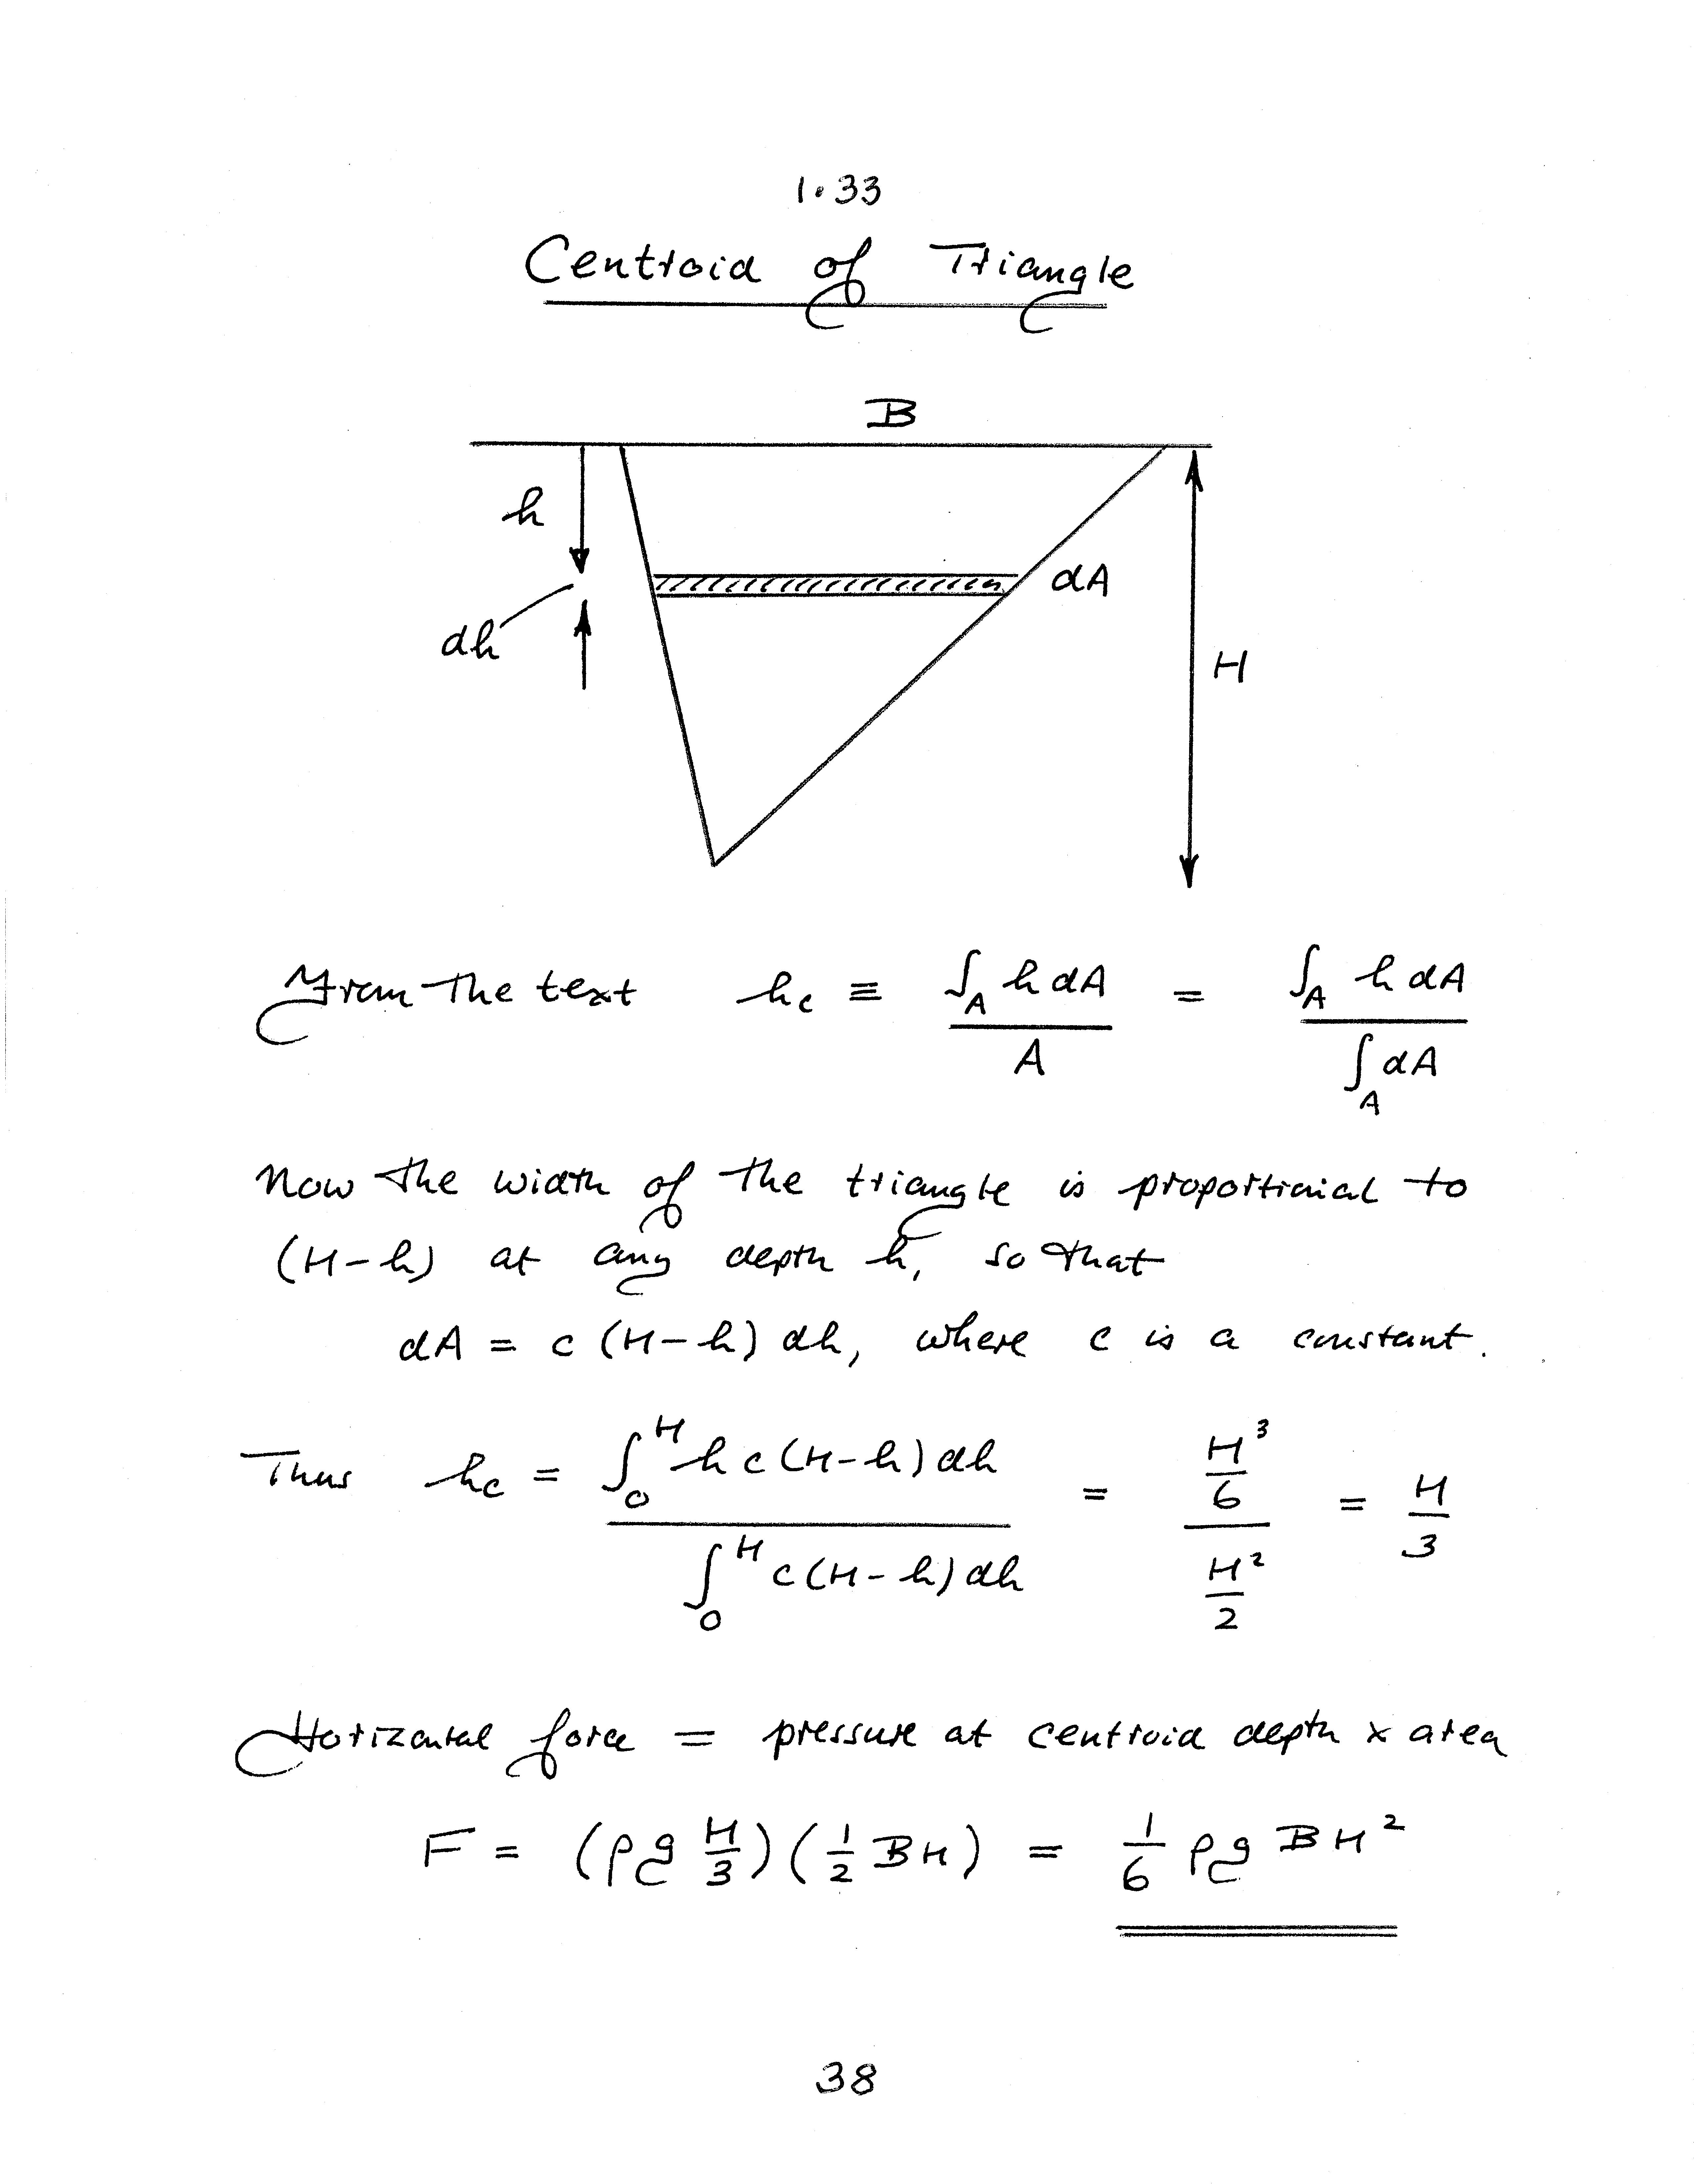 1.33
Centroid of Triangle
B
h
dA
dh
H
From the text h_c ≡ ∫_A h dA / A = ∫_A h dA / ∫_A dA
Now the width of the triangle is proportional to
(H-h) at any depth h, so that
dA = c (H-h) dh, where c is a constant.
Thus h_c = ∫_0^H h c (H-h) dh / ∫_0^H c (H-h) dh = (H^3/6) / (H^2/2) = H/3
Horizontal force = pressure at centroid depth x area
F = (ρg H/3) (1/2 BH) = 1/6 ρg BH^2
38